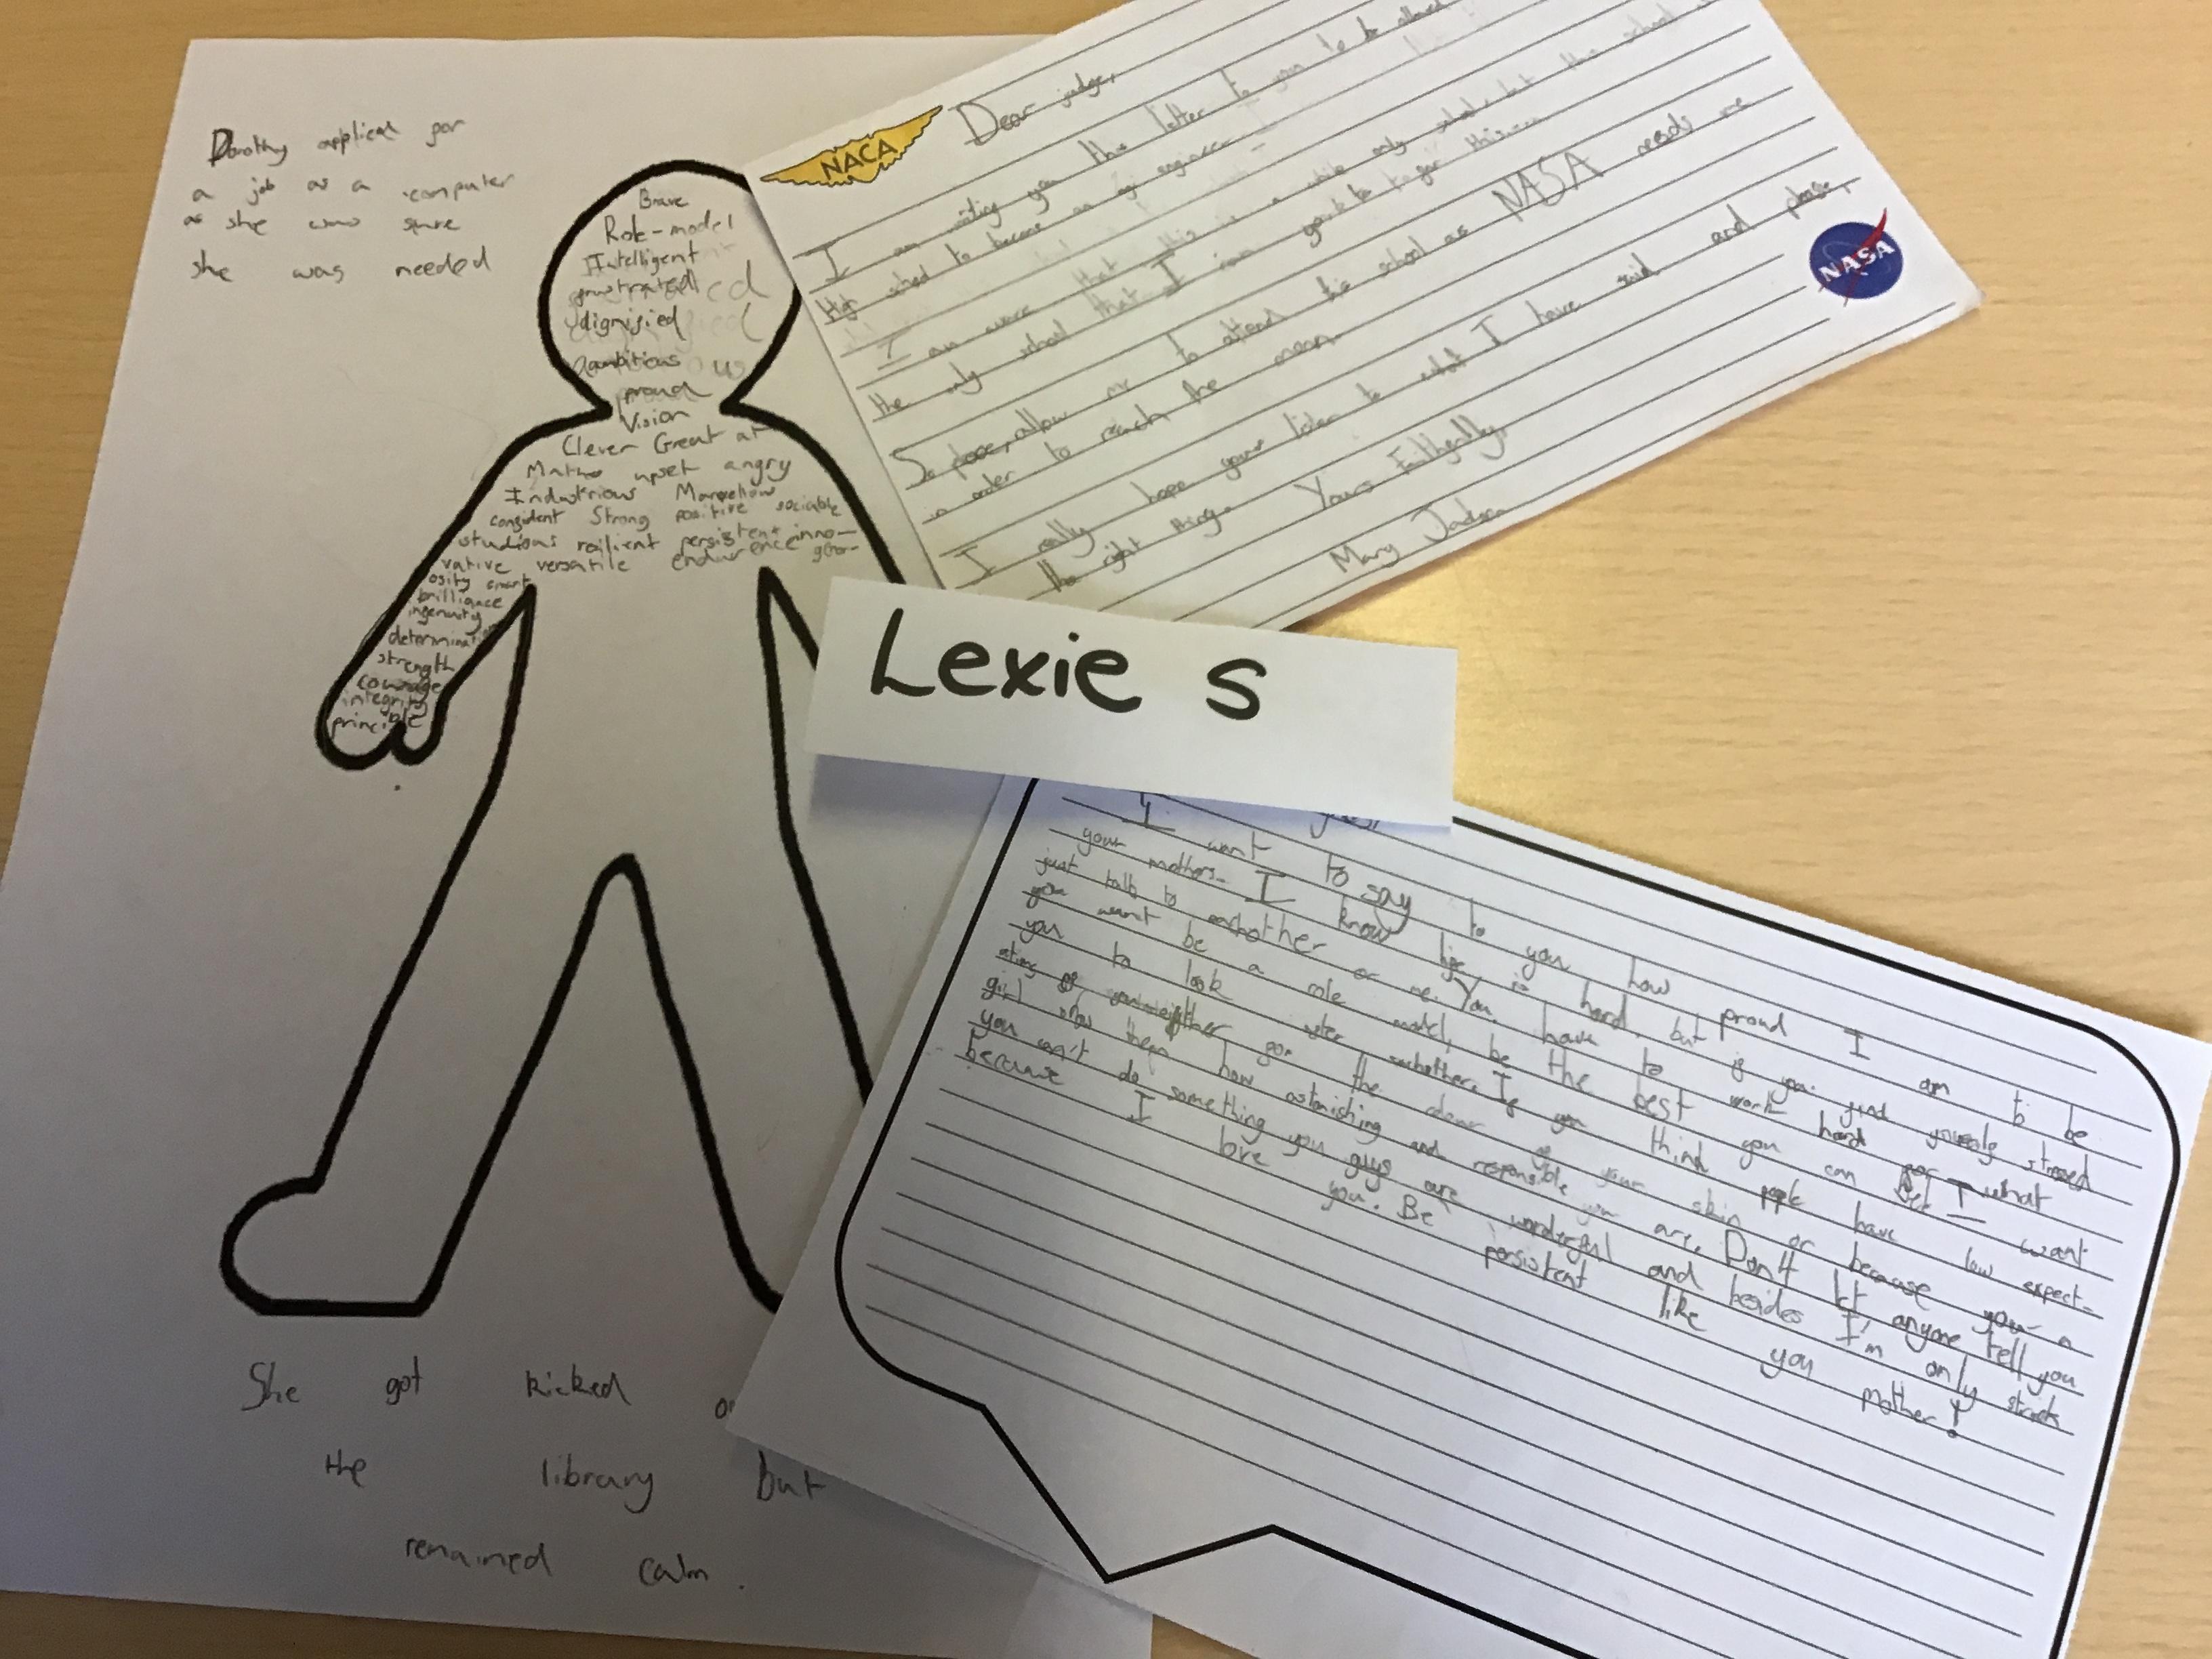 Dorothy applied for
a job as a computer
as she was sure
she was needed
Brave
Role-model
Intelligent
frustrated
dignified
ambitious
proud
Vision
Clever Great at
Maths upset angry
Industrious
confident Strong positive sociable
studious resilient persistent inno-
vative versatile endurence gener-
osity smart
brilliance
ingenuity
determination
strength
courage
integrity
principle
She got kicked
the library but
remained calm.
NACA
Dear judge,
I am writing you this letter to you to be allowed
High school to become an engineer
I am aware that this is a white only school but this school is
the only school that I can go to for this
So please, allow me to attend this school as NASA needs me
in order to reach the moon
I really hope you listen to what I have said and please,
the right thing.
Yours Faithfully,
Mary Jackson
NASA
Lexie S
I want to say to you how proud I am to be
your mothers. I know life is hard, but if you find yourself stressed
just talk to eachother or me. You have to work hard for what
you want be a role model, be the best you can be! I want
you to look after eachother. If you think people have low expect-
ations of you either for the colour of your skin or because your a
girl show them how astonishing and responsible you are. Don't let anyone tell you
you can't do something you guys are wonderful and besides I'm only strict
because I love you. Be persistent like you mother!